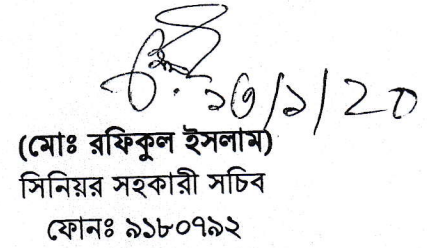 ১৬/১/20
(মোঃ রফিকুল ইসলাম)
সিনিয়র সহকারী সচিব
ফোনঃ ৯১৮০৭৯২